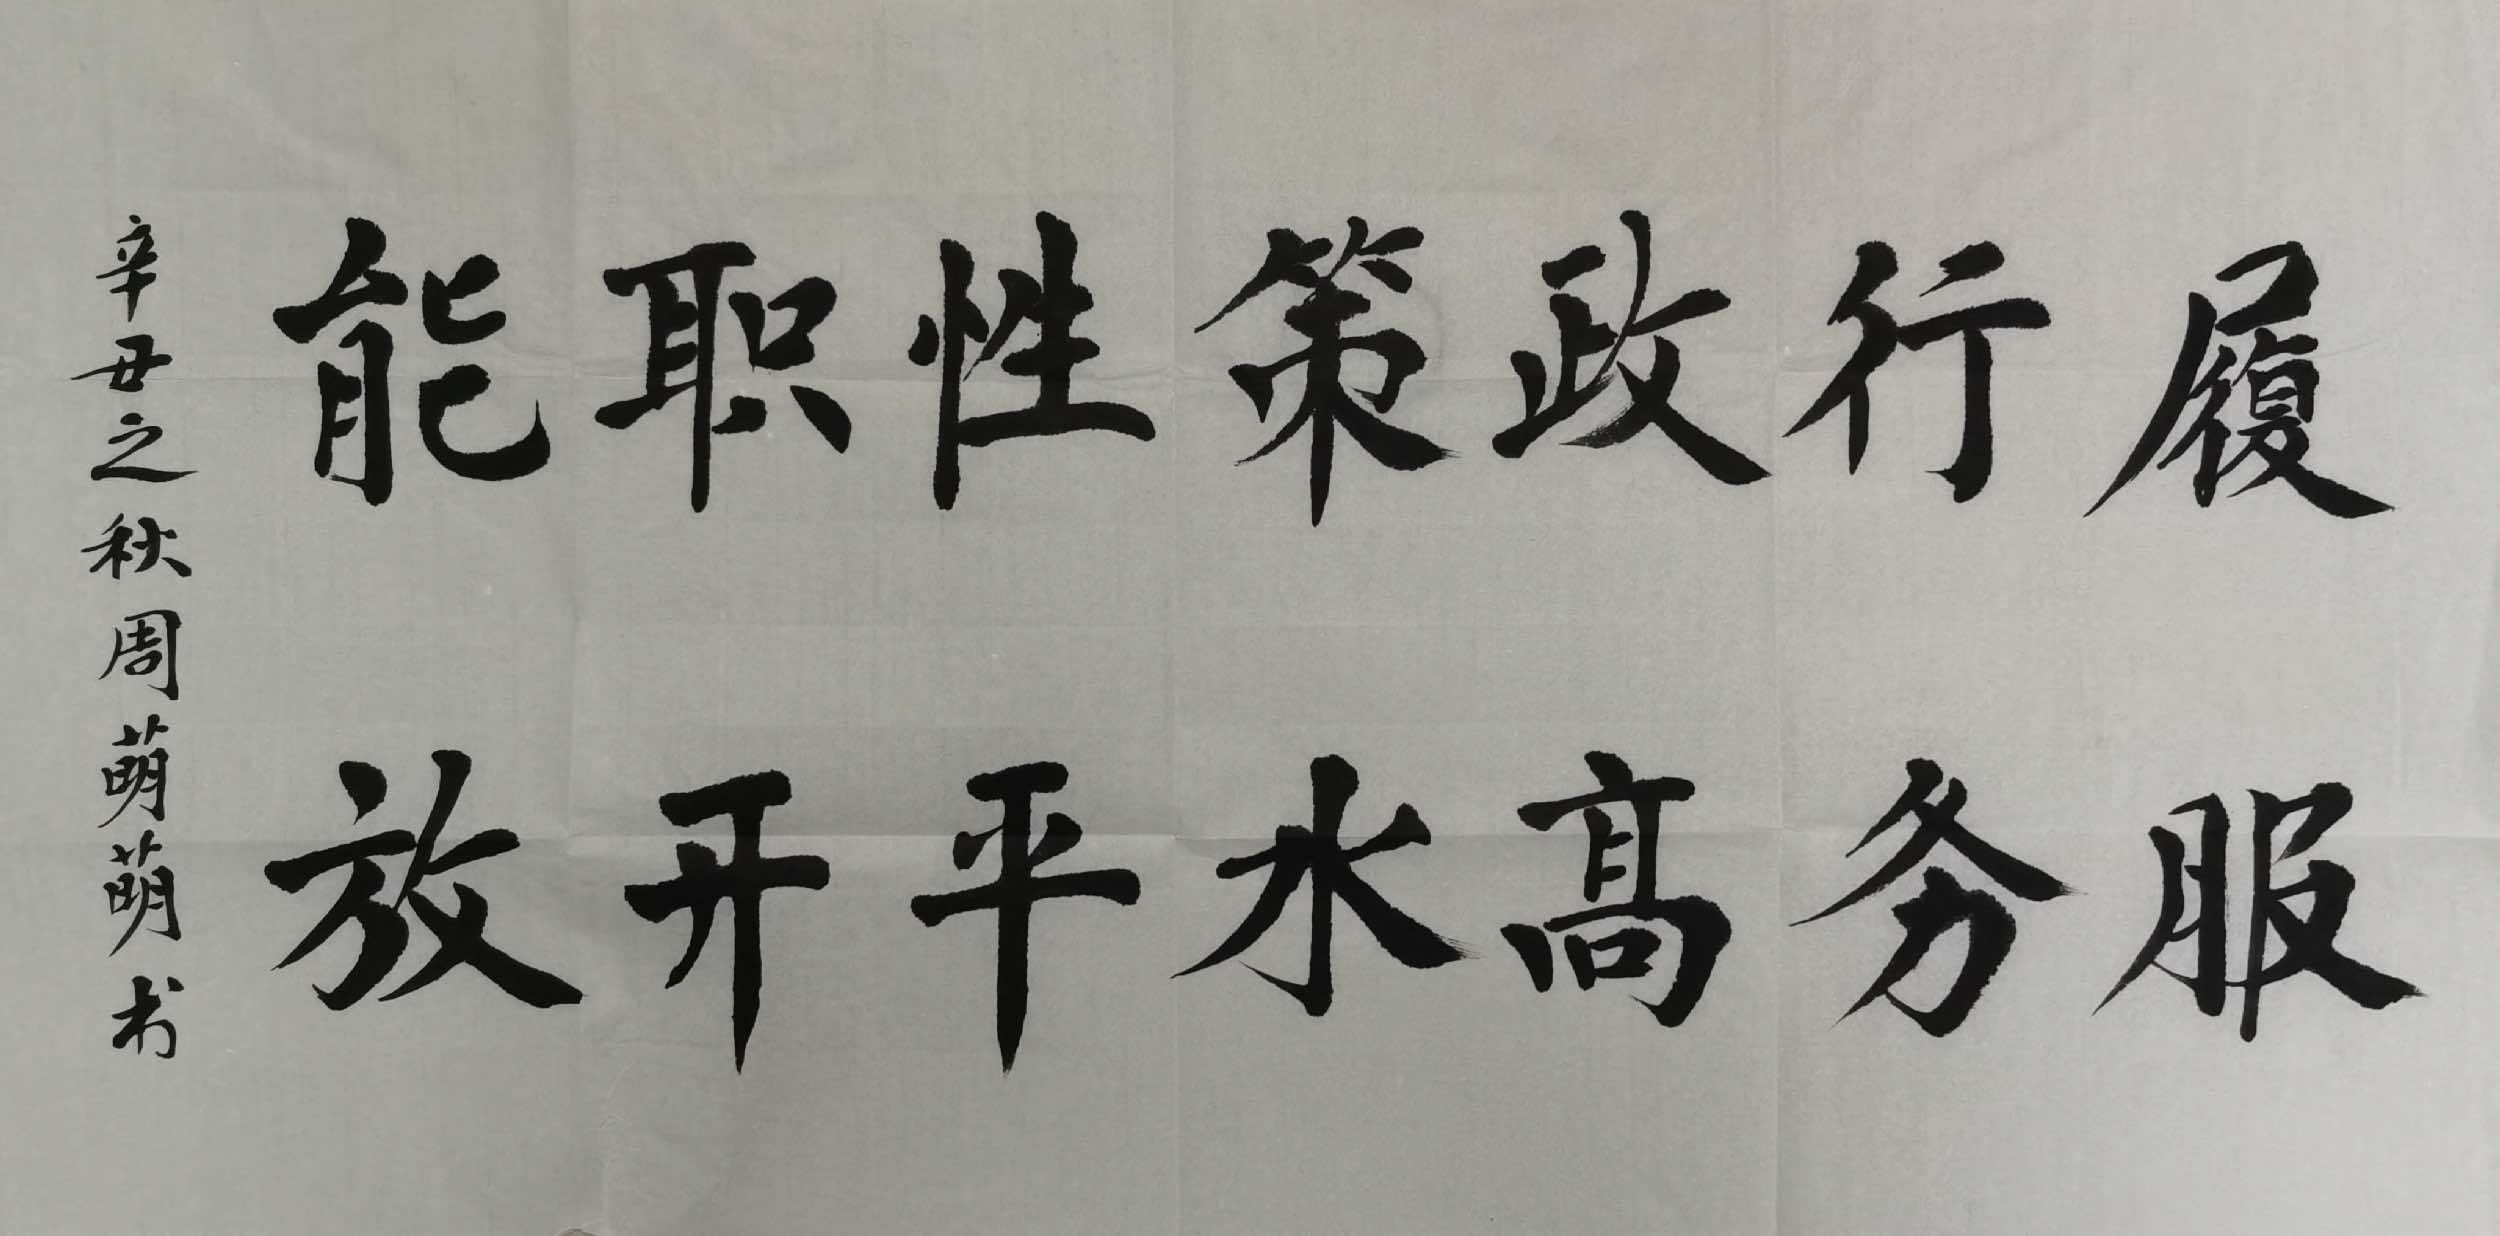 履行政策性职能
服务高水平开放
辛丑之秋周萌萌书